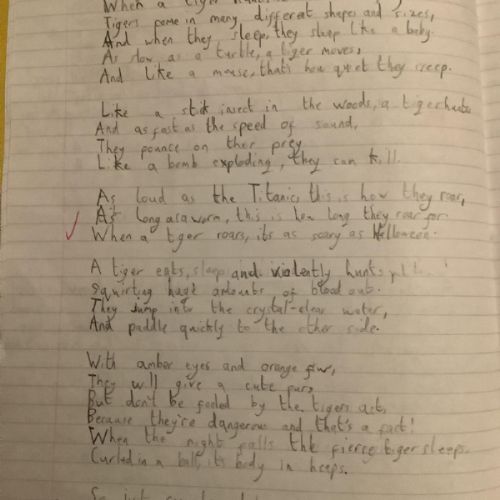 When a tiger
Tigers come in many different shapes and sizes,
And when they sleep, they sleep like a baby.
As slow as a turtle, a tiger moves,
And like a mouse, that's how quiet they creep.
Like a stick insect in the woods, a tiger hunts
And as fast as the speed of sound,
They pounce on ther prey
Like a bomb exploding, they can kill.
As loud as the Titanic, this is how they roar,
As long as a worm, this is how long they roar for.
When a tiger roars, its as scary as Halloween.
A tiger eats, sleep and violently hunts
Squirting huge amounts of blood out.
They jump into the crystal-clear water,
And paddle quickly to the other side.
With amber eyes and orange fur,
They will give a cute purr,
But don't be fooled by the tigers act,
Because they're dangerous and that's a fact!
When the night falls the fierce tiger sleeps.
Curled in a ball, its body in heeps.
So just